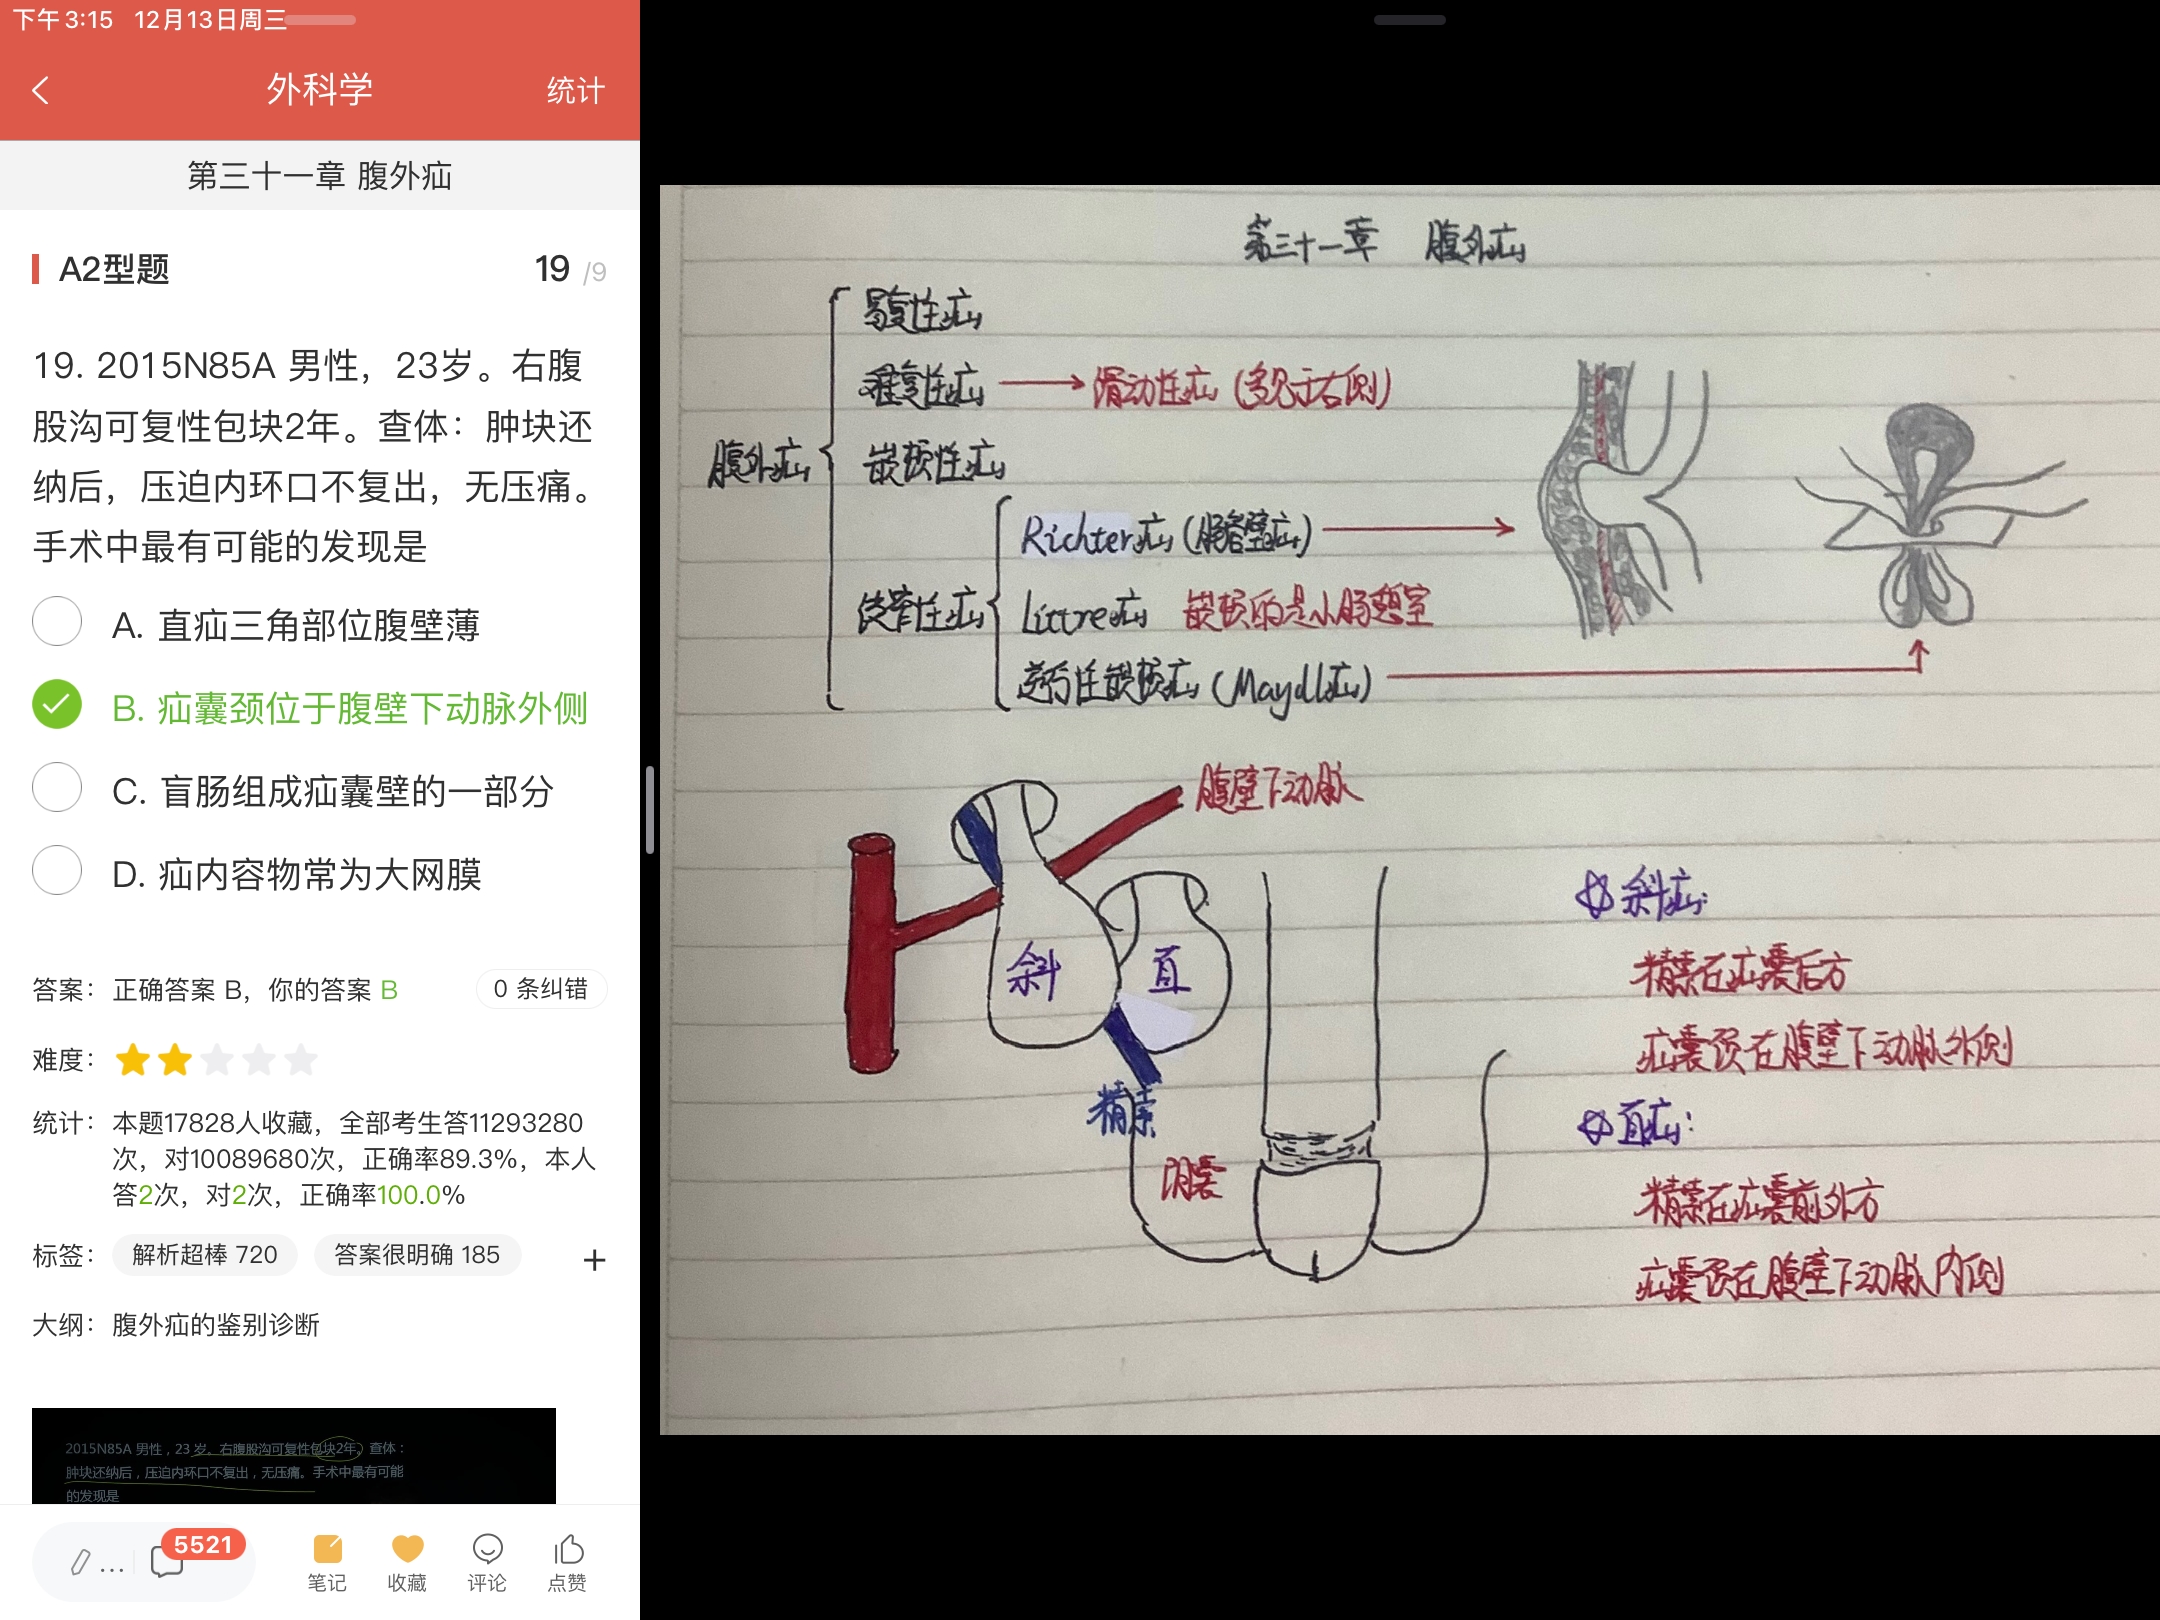 下午3:15 12月13日周三
外科学
统计
第三十一章 腹外疝
A2型题
19 /9
19. 2015N85A 男性，23岁。右腹
股沟可复性包块2年。查体：肿块还
纳后，压迫内环口不复出，无压痛。
手术中最有可能的发现是
A. 直疝三角部位腹壁薄
B. 疝囊颈位于腹壁下动脉外侧
C. 盲肠组成疝囊壁的一部分
D. 疝内容物常为大网膜
答案： 正确答案 B，你的答案 B
0 条纠错
难度：
统计： 本题17828人收藏，全部考生答11293280
次，对10089680次，正确率89.3%，本人
答2次，对2次，正确率100.0%
标签： 解析超棒 720 答案很明确 185 +
大纲： 腹外疝的鉴别诊断
2015N85A 男性，23 岁。右腹股沟可复性包块2年。查体：
肿块还纳后，压迫内环口不复出，无压痛。手术中最有可能
的发现是
...
5521
笔记
收藏
评论
点赞
第三十一章 腹外疝
易复性疝
难复性疝 滑动性疝（多见于右侧）
腹外疝
嵌顿性疝
Richter疝（肠管壁疝）
绞窄性疝
Littre疝 嵌顿的是小肠憩室
逆行性嵌顿疝（Maydl疝）
腹壁下动脉
斜
直
精索
阴囊
斜疝：
精索在疝囊后方
疝囊颈在腹壁下动脉外侧
直疝：
精索在疝囊前外方
疝囊颈在腹壁下动脉内侧